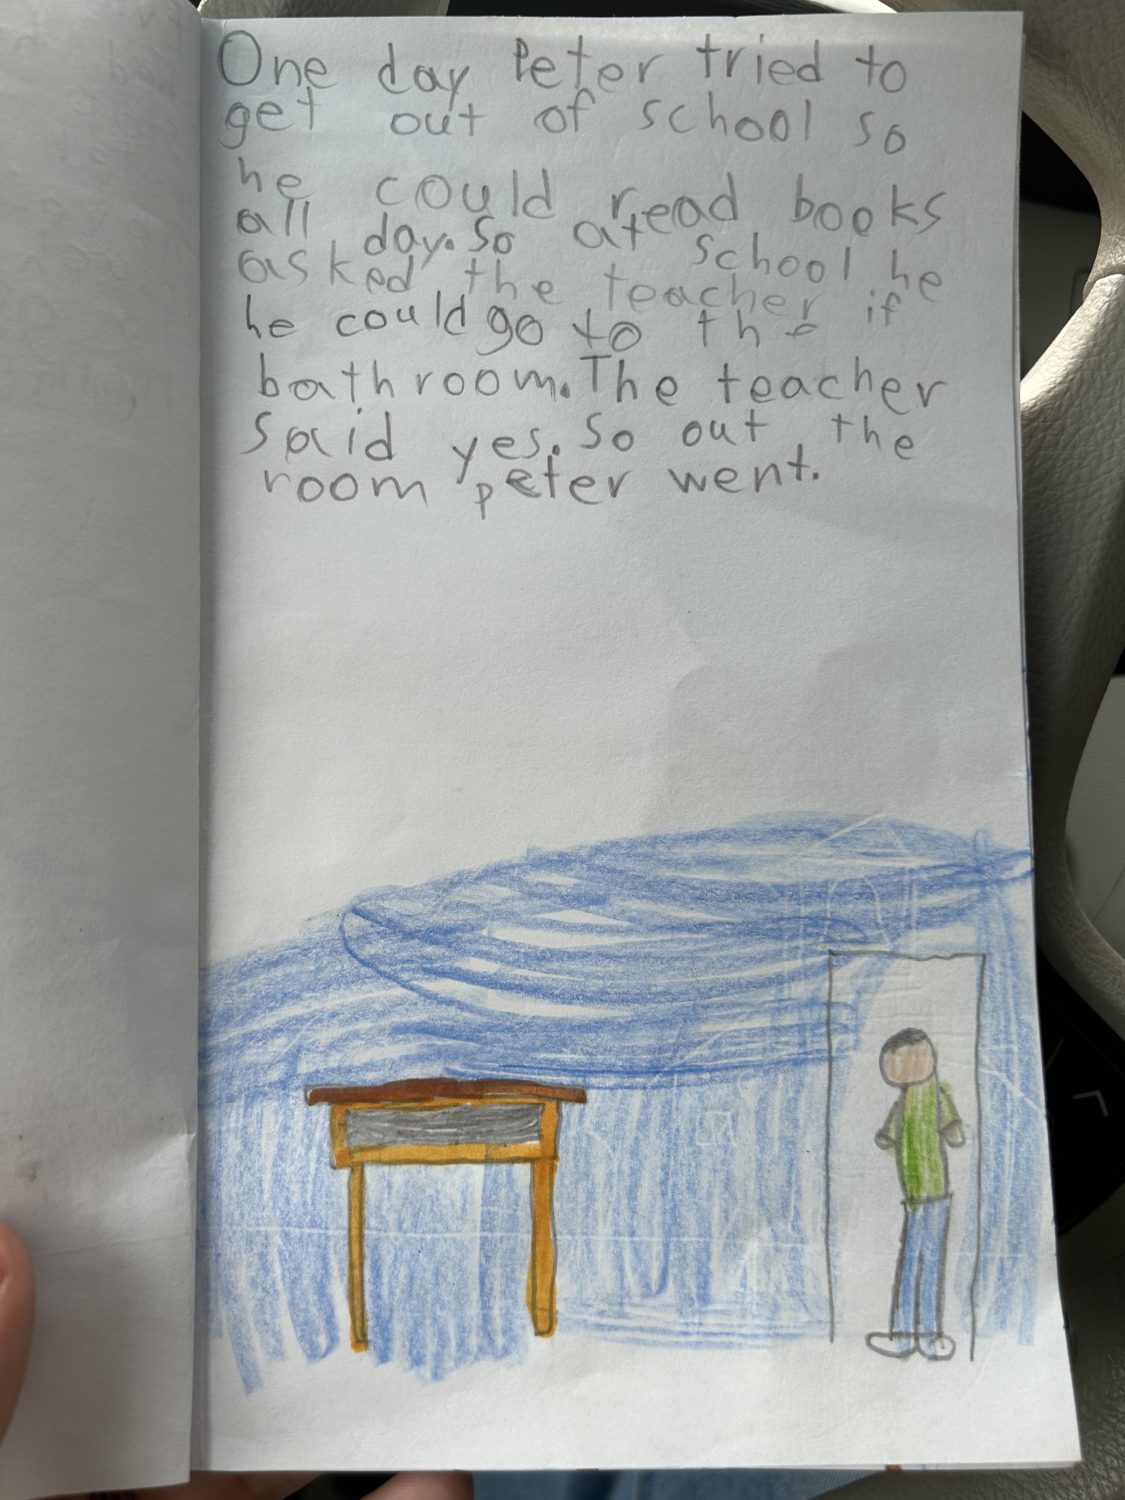 One day Peter tried to
get out of school so
he could read books
all day. So at school he
asked the teacher if
he could go to the
bathroom. The teacher
said yes. So out the
room peter went.